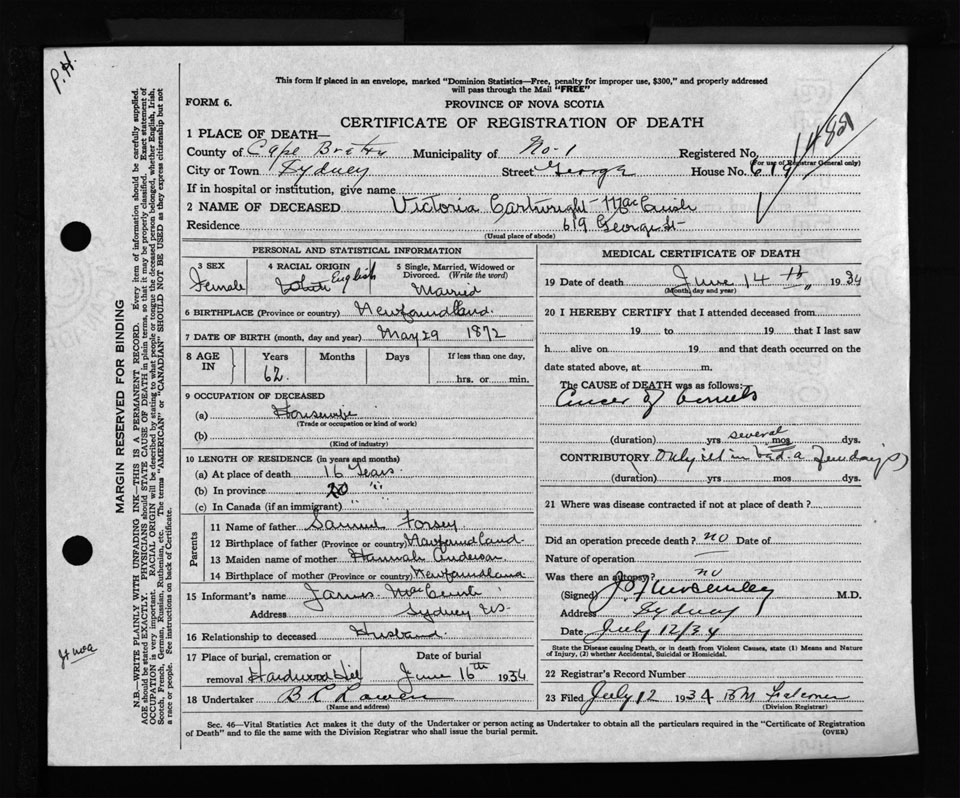 P.H.
This form if placed in an envelope, marked "Dominion Statistics—Free, penalty for improper use, $300," and properly addressed
will pass through the Mail "FREE"
FORM 6.
PROVINCE OF NOVA SCOTIA
CERTIFICATE OF REGISTRATION OF DEATH
1 PLACE OF DEATH—
County of Cape Breton Municipality of No-1 Registered No.
(For use of Registrar General only)
City or Town Sydney Street George House No. 619
If in hospital or institution, give name
2 NAME OF DECEASED Victoria Cartwright
Residence 619 George St
(Usual place of abode)
MARGIN RESERVED FOR BINDING
N.B.—WRITE PLAINLY WITH UNFADING INK—THIS IS A PERMANENT RECORD. Every item of information should be carefully supplied.
AGE should be stated EXACTLY. PHYSICIANS should STATE CAUSE OF DEATH in plain terms, so that it may be properly classified. Exact statement of
OCCUPATION is very important. RACIAL ORIGIN will be described by stating to what people or tongue the deceased person belonged, whether English, Irish,
Scotch, French, German, Russian, Ruthenian, etc. The terms "AMERICAN" or "CANADIAN" SHOULD NOT BE USED as they express citizenship but not
a race or people. See instructions on back of Certificate.
PERSONAL AND STATISTICAL INFORMATION
3 SEX 4 RACIAL ORIGIN 5 Single, Married, Widowed or
Divorced. (Write the word)
Female White English Married
6 BIRTHPLACE (Province or country) Newfoundland.
7 DATE OF BIRTH (month, day and year) May 29 1872
8 AGE IN Years Months Days If less than one day,
62. hrs. or min.
9 OCCUPATION OF DECEASED
(a) Housewife
(Trade or occupation or kind of work)
(b)
(Kind of industry)
10 LENGTH OF RESIDENCE (in years and months)
(a) At place of death 16 Years.
(b) In province 20 "
(c) In Canada (if an immigrant) " "
Parents
11 Name of father Samuel Forsey
12 Birthplace of father (Province or country) Newfoundland.
13 Maiden name of mother Hannah Anderson
14 Birthplace of mother (Province or country) Newfoundland
15 Informant's name James
Address Sydney NS.
16 Relationship to deceased Husband.
17 Place of burial, cremation or Date of burial
removal Hardwood Hill June 16th 1934
18 Undertaker
(Name and address)
MEDICAL CERTIFICATE OF DEATH
19 Date of death June 14th 1934
(Month, day and year)
20 I HEREBY CERTIFY that I attended deceased from
19 to 19 that I last saw
h alive on 19 and that death occurred on the
date stated above, at m.
The CAUSE OF DEATH was as follows:
Cancer of
(duration) yrs several mos dys.
CONTRIBUTORY (Only ill in bed a few days)
(duration) yrs mos dys.
21 Where was disease contracted if not at place of death?
Did an operation precede death? no Date of
Nature of operation —
Was there an autopsy? no
(Signed) M.D.
Address Sydney
Date July 12/34
State the Disease causing Death, or in death from Violent Causes, state (1) Means and Nature
of Injury, (2) whether Accidental, Suicidal or Homicidal.
22 Registrar's Record Number
23 Filed July 12 1934
(Division Registrar)
Sec. 46—Vital Statistics Act makes it the duty of the Undertaker or person acting as Undertaker to obtain all the particulars required in the "Certificate of Registration
of Death" and to file the same with the Division Registrar who shall issue the burial permit. (OVER)